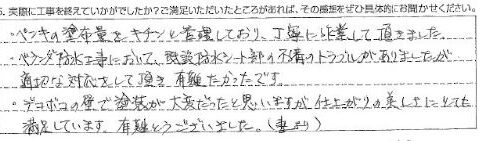 5. 実際に工事を終えていかがでしたか？ご満足いただいたところがあれば、その感想をぜひ具体的にお聞かせください。
・ペンキの塗布量をキチンと管理しており、丁寧に作業して頂きました。
・ベランダ防水工事において、既設防水シート部の不着のトラブルがありましたが
適切な対応をして頂き、有難たかったです。
・デコボコの壁で塗装が大変だったと思いますが、仕上がりの美しさにとても
満足しています。有難とうございました。（妻より）